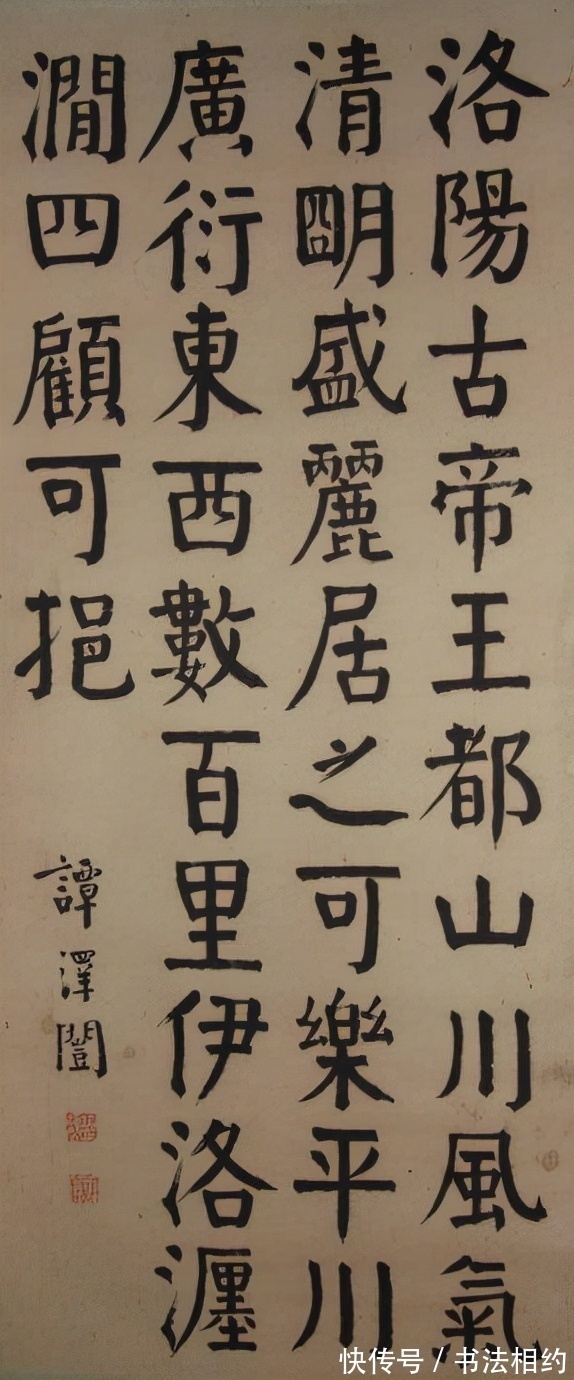 洛陽古帝王都山川風氣
清朙盛麗居之可樂平川
廣衍東西數百里伊洛瀍
澗四顧可挹
譚澤闓
快传号/书法相约